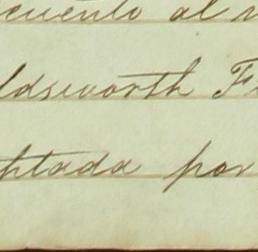 cuento al
ldsworth F
ptada por